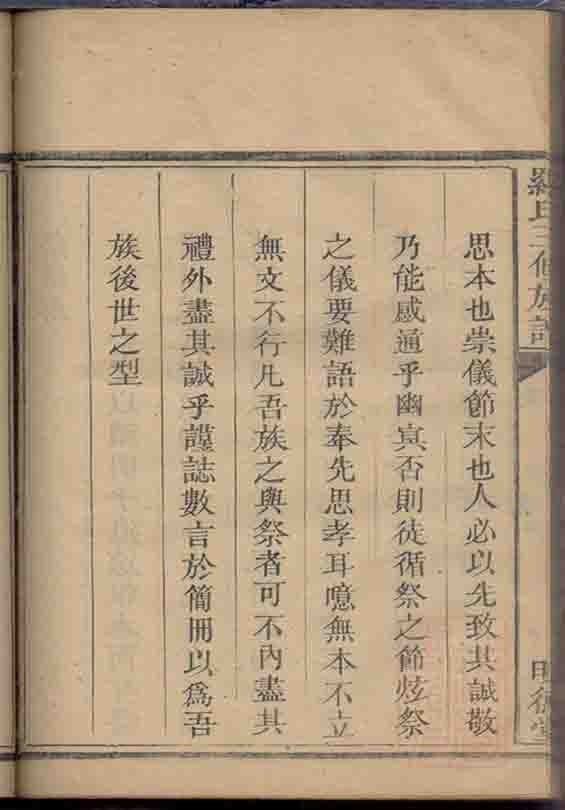 羅氏三修族譜
明德堂
思本也崇儀節末也人必以先致其誠敬
乃能感通乎幽㝠否則徒循祭之節炫祭
之儀要難語於奉先思孝耳噫無本不立
無文不行凡吾族之與祭者可不內盡其
禮外盡其誠乎謹誌數言於簡冊以爲吾
族後世之型